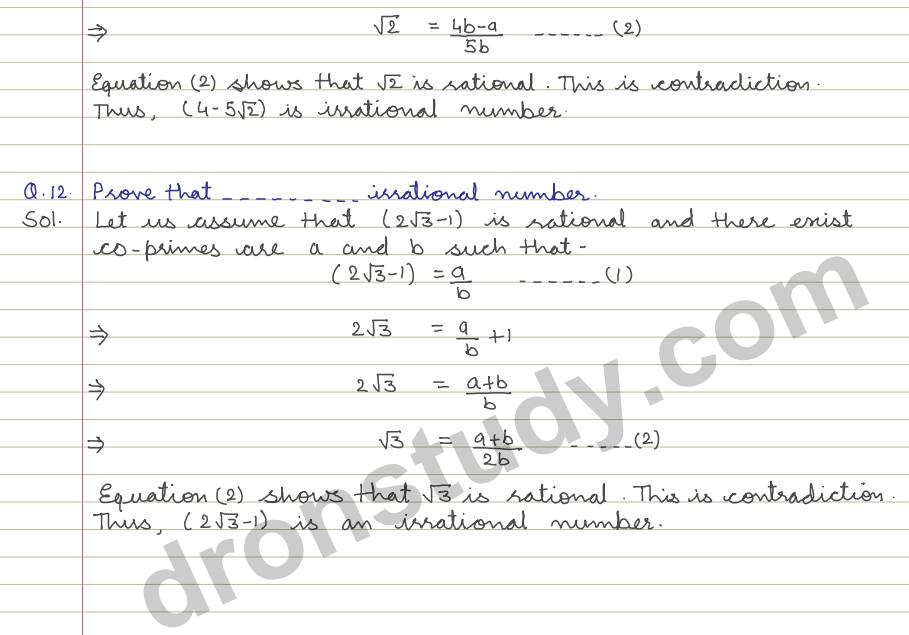 ⇒ √2 = (4b-a)/5b ------ (2)
Equation (2) shows that √2 is rational. This is contradiction.
Thus, (4-5√2) is irrational number.
Q.12. Prove that ---------- irrational number.
Sol. Let us assume that (2√3-1) is rational and there exist
co-primes are a and b such that -
(2√3-1) = a/b ------(1)
⇒ 2√3 = a/b +1
⇒ 2√3 = (a+b)/b
⇒ √3 = (a+b)/2b -----(2)
Equation (2) shows that √3 is rational. This is contradiction.
Thus, (2√3-1) is an irrational number.
dronstudy.com